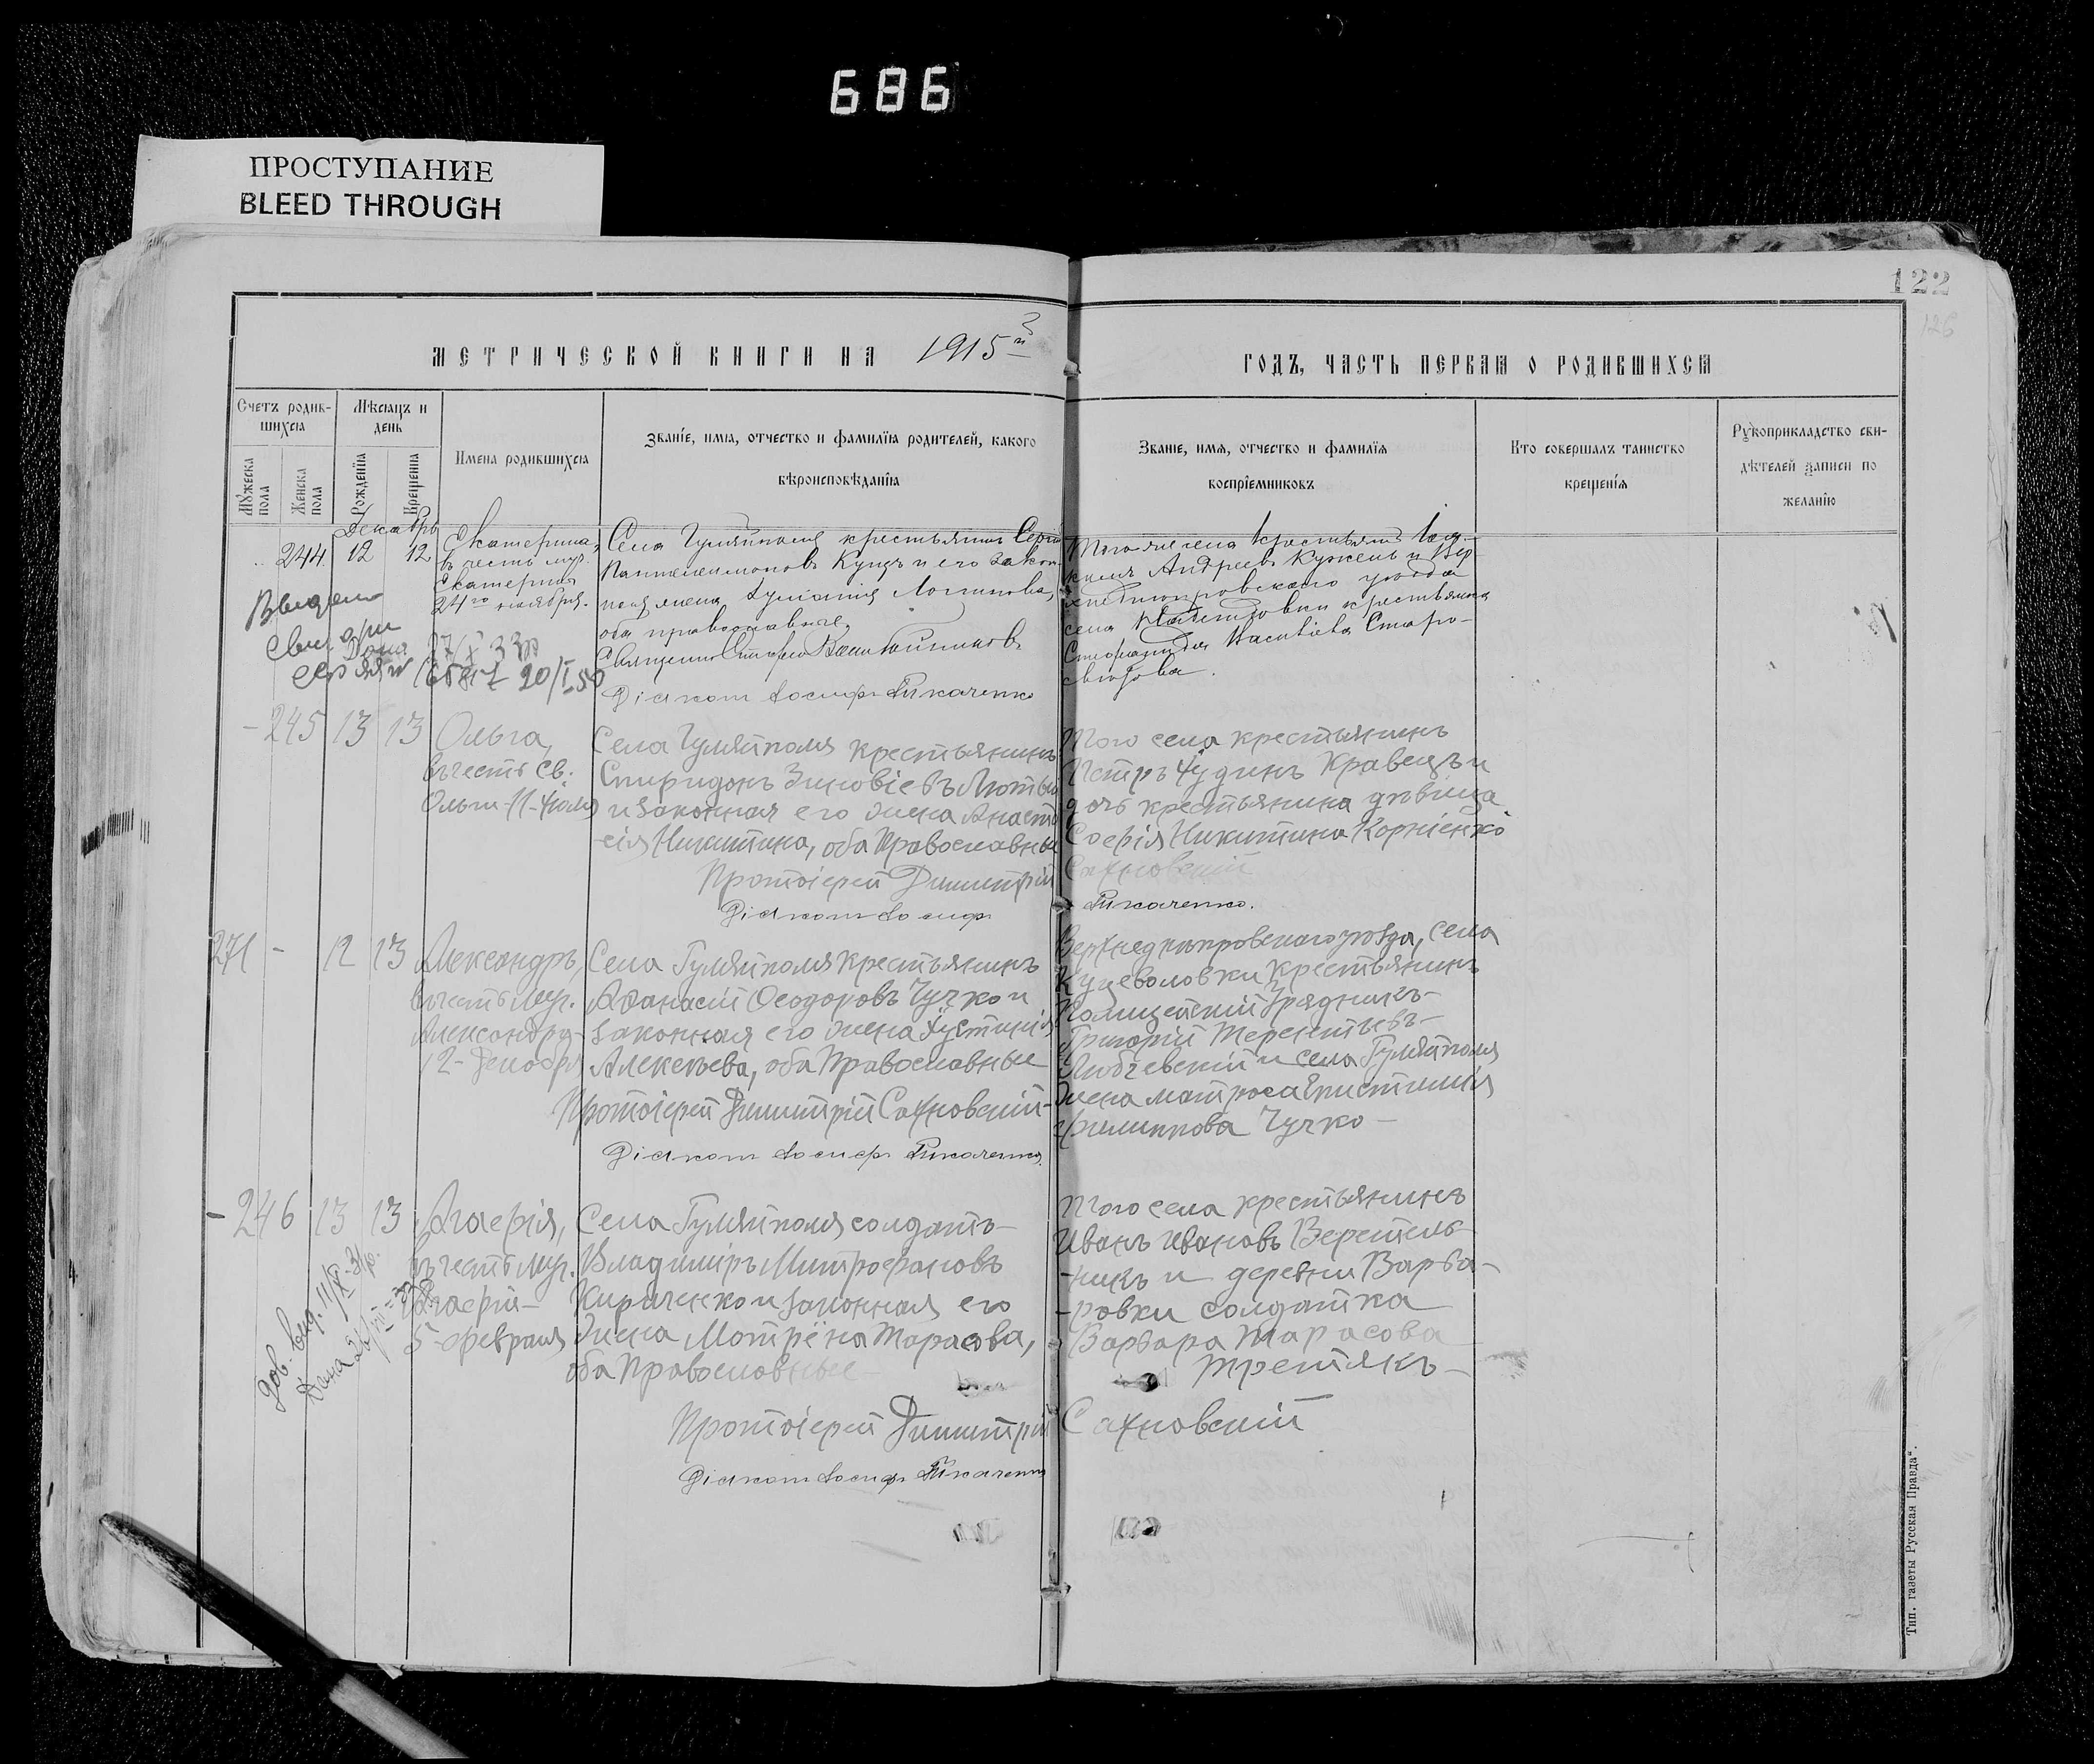 686
ПРОСТУПАНИЕ
BLEED THROUGH
122
126
МЕТРИЧЕСКОЙ КНИГИ НА 1915 й
ГОДЪ, ЧАСТЬ ПЕРВАЯ О РОДИВШИХСЯ
Счетъ родив-
шихся
Мѣсяцъ и
день
Мужеска
пола
Женска
пола
Рожденїя
Крещенїя
Имена родившихся
Званїе, имя, отчество и фамилїя родителей, какого
вѣроисповѣданїя
Званїе, имя, отчество и фамилїя
воспрїемниковъ
Кто совершалъ таинство
крещенїя
Рукоприкладство сви-
дѣтелей записи по
желанїю
Декабрь
244 12 12
Екатерина,
въ честь муч.
Екатерины
24го ноября.
Села Гуляйполя крестьянинъ Сергій
Пантелеимоновъ Куцъ и его закон-
ная жена Логинова,
оба православные.
Священникъ
Діаконъ Іосифъ Ткаченко
Того же села крестьянинъ
Андреевъ и Вер-
хнеднѣпровскаго уѣзда
села крестьянка
Старо-
Выдано
27/X 33
20/I 50
- 245 13 13
Ольга,
въ честь св.
Ольги 11 Іюля
Села Гуляйполя крестьянинъ
Спиридонъ Зиновіевъ Лютый
и законная его жена Анаста-
сія Никитина, оба Православные
Протоіерей Димитрій Сахновскій
Діаконъ Іосифъ Ткаченко.
Того села крестьянинъ
Петръ Іудинъ Кравецъ и
дочь крестьянина дѣвица
Софія Никитина Корніенко
271 - 12 13
Александръ,
въ честь муч.
Александра -
12 - Декабря
Села Гуляйполя крестьянинъ
Аѳанасій Ѳеодоровъ Чучко и
законная его жена Іустинія
Алексѣева, оба Православные
Протоіерей Димитрій Сахновскій -
Діаконъ Іосифъ Ткаченко.
Верхнеднѣпровскаго уѣзда, села
Куцеволовки крестьянинъ
Полицейскій Урядникъ -
Григорій Терентьевъ -
и села Гуляйполя
жена матроса Христинія
Филиппова Чучко -
- 246 13 13
Агаѳія,
въ честь муч.
Агаѳіи -
5 февраля
Села Гуляйполя солдатъ -
Владиміръ Митрофановъ
Кириченко и законная его
жена Мотрёна Тарасова,
оба Православные -
Того села крестьянинъ
Иванъ Ивановъ Веретель-
никъ и деревни Варва-
-ровки солдатка
Варвара Тарасова
Третякъ -
Протоіерей Димитрій Сахновскій
Діаконъ Іосифъ Ткаченко
Тип. газеты Русская Правда“.